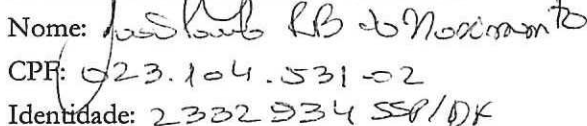 Nome: João Paulo RB do Nascimento
CPF: 023.104.531-02
Identidade: 2332934 SSP/DF